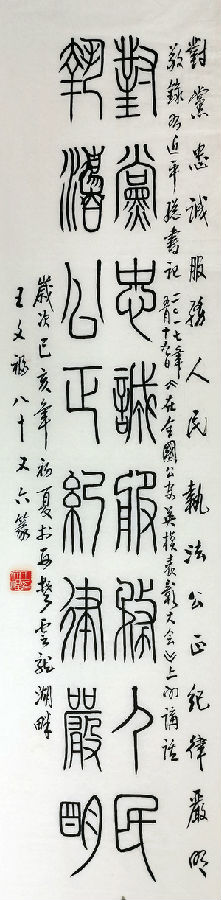 對黨忠誠服務人民
執法公正紀律嚴明
對黨忠誠服務人民執法公正紀律嚴明
敬錄習近平總書記二〇一七年五月十九日《在全國公安英模表彰大會》上的講話
歲次己亥年初夏於
雲龍湖畔
王文
八十又六篆